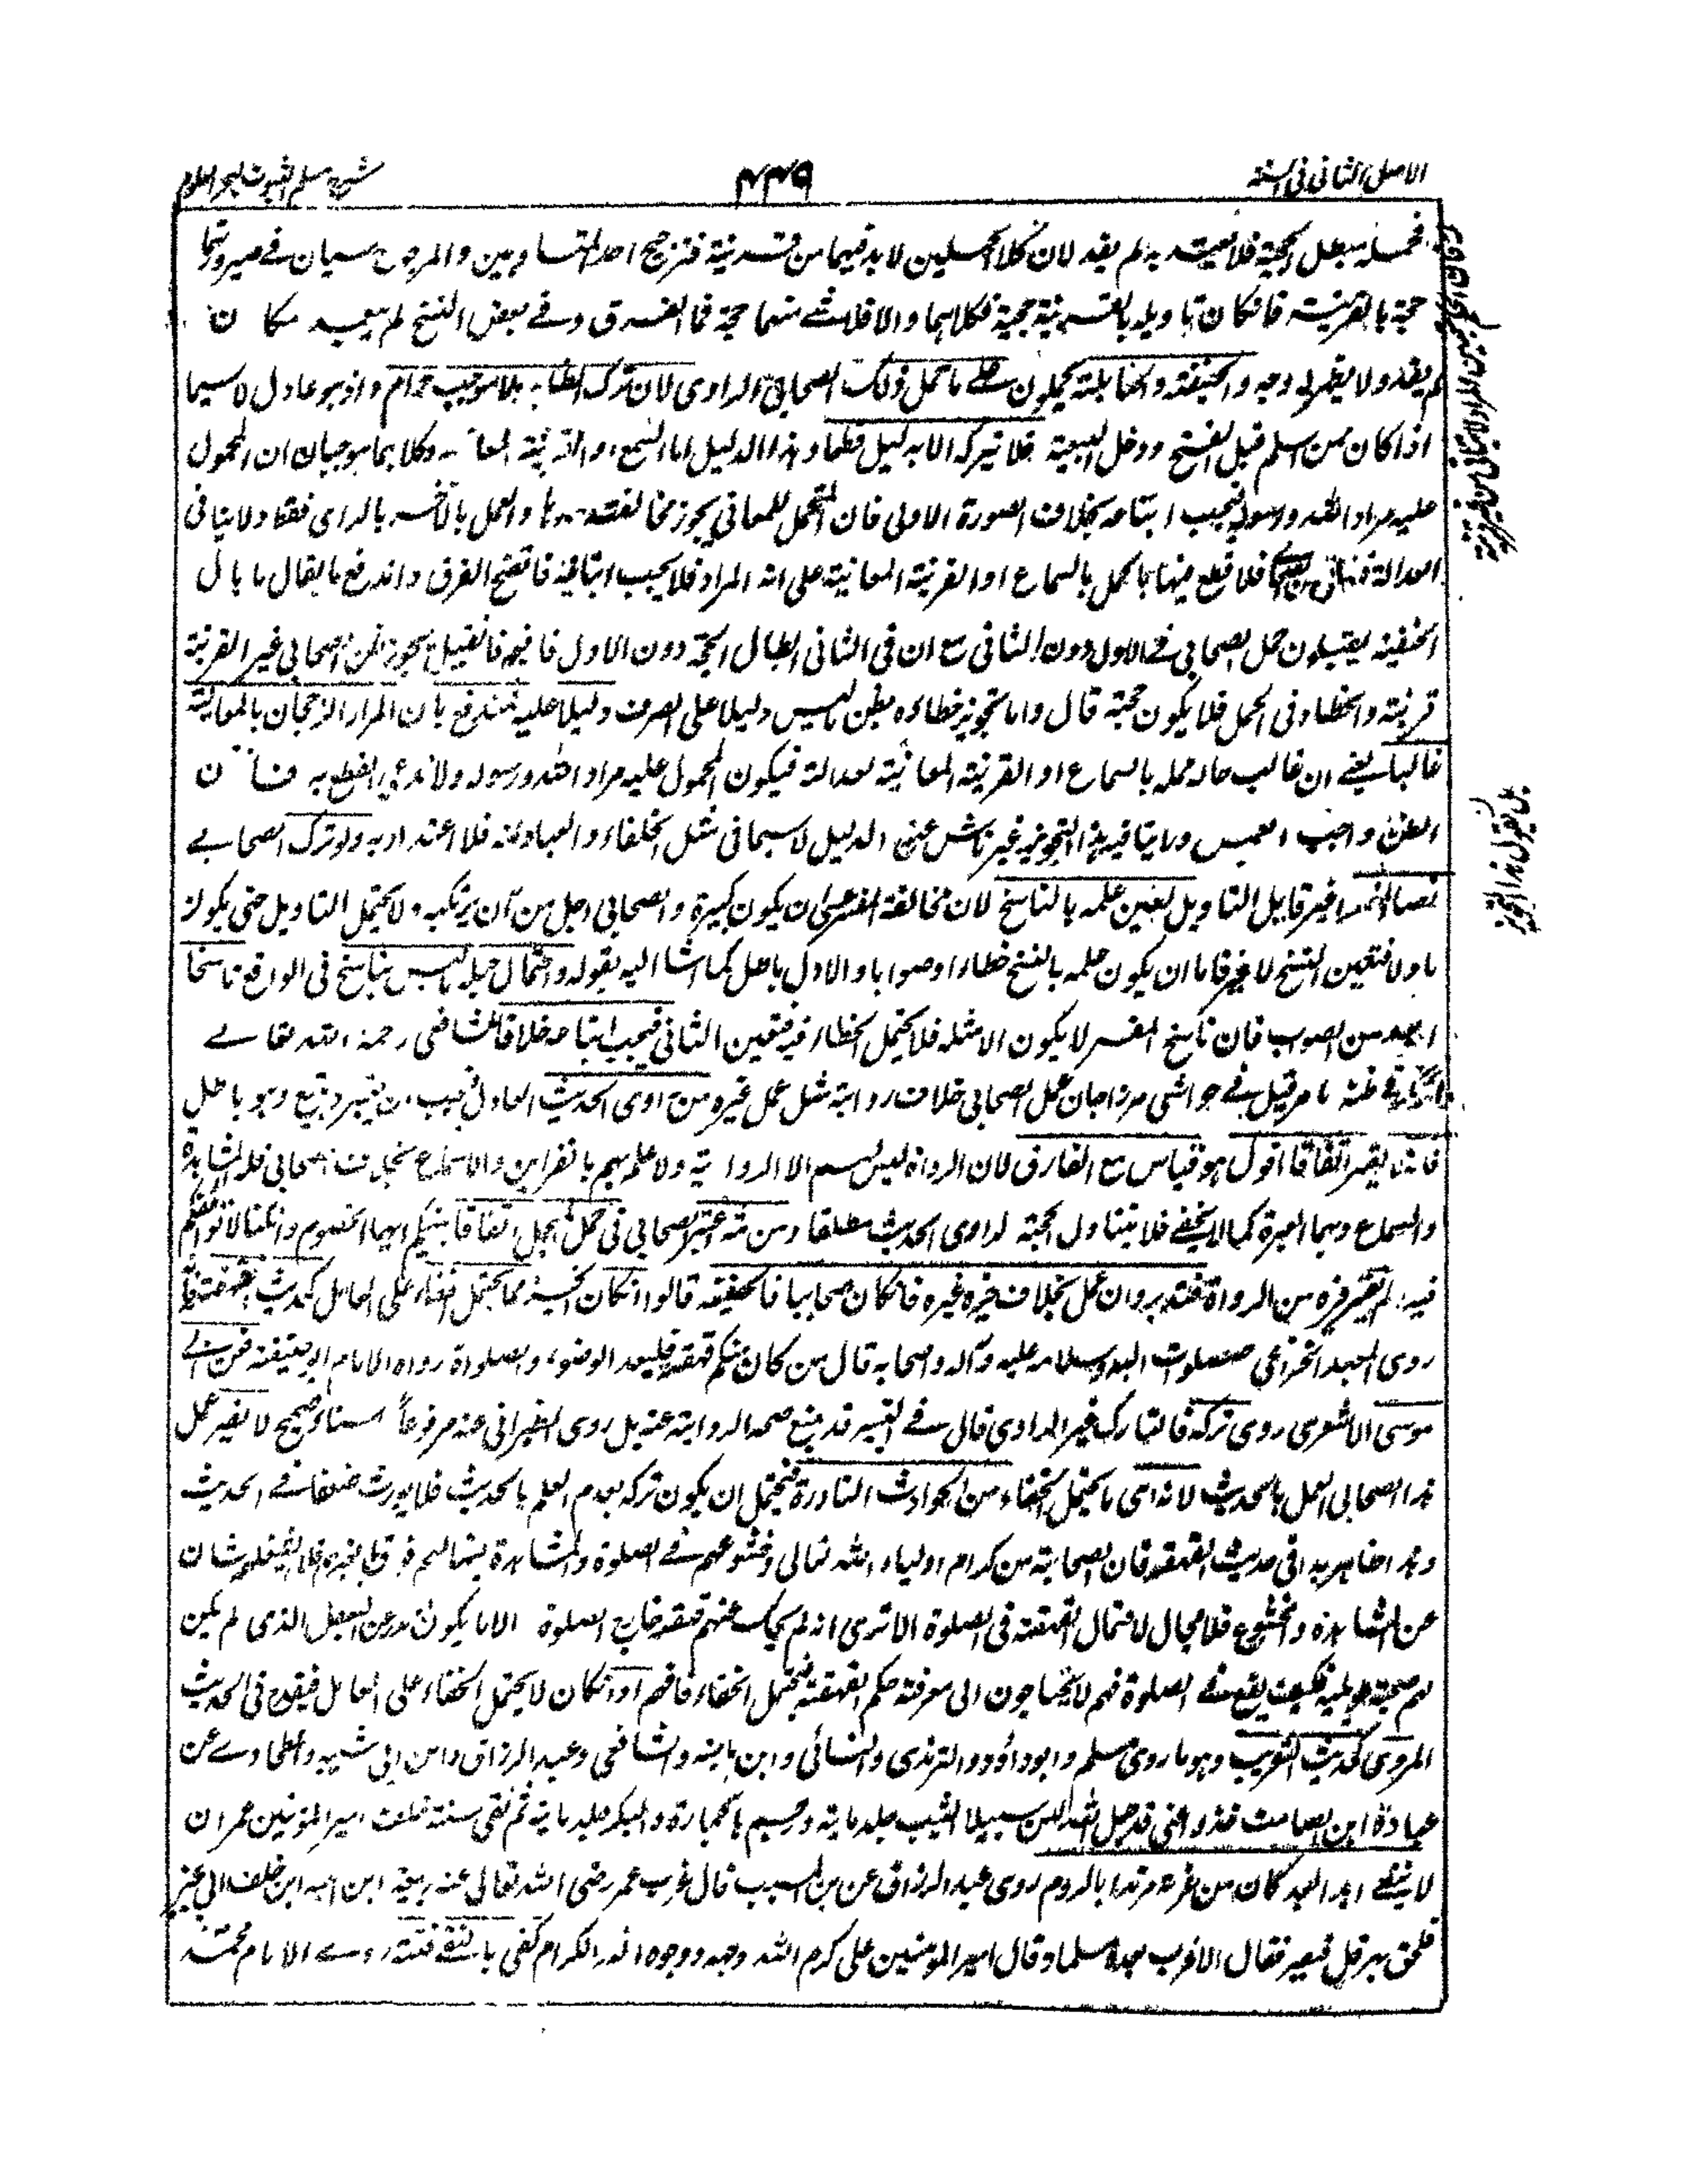 الاصل الثانى فى السنة
٤٤٩
شرح مسلم الثبوت لبحر العلوم
فحمله يبطل الحجية فلا يعتد به لم يفد لان كلا الحملين لا بد فيهما من قرينة فترجيح احد المتساويين والمرجوح سيان فے صيرورتهما
حجة بالقرينة فانكان تاويله بالقرينة حجية فكلاهما والا فلا شے منهما حجة فما الفرق وفے بعض النسخ لم يعبه كان
لم يفد ولا يظهر له وجه والحنفية والحنابلة يحملون على ما حمل ذلك الصحابى الراوى لان ترك الظاهر بلا موجب حرام واذ هو عادل لا سيما
اذا كان ممن اسلم قبل الفتح ودخل البيعة فلا يتركه الا بدليل قطعا وهذا الدليل اما السمع او القرينة المعاينة وكلاهما يوجبان ان المحمول
عليه مراد الله ورسوله فيجب اتباعه بخلاف الصورة الاولى فان المحتمل للمعانى يجوز مخالفة والعمل بالآخر بالراى فقط ولا ينافى
العدالة فلا قطع فيها بالحمل بالسماع او القرينة المعاينة على انه المراد فلا يجب اتباعه فاتضح الفرق واندفع ما يقال ما بال
الحنفية يقبلون حمل الصحابى فے الاول دون الثانى مع ان فى الثانى ابطال الحجة دون الاول فافهم فان قيل يجوز ظن الصحابى غير القرينة
قرينة والخطاء فى الحمل فلا يكون حجة قال واما تجويز خطاءه بظن ما ليس دليلا على الصرف دليلا عليه فمندفع بان المراد الرجحان بالمعاينة
غالبا يعنے ان غالب حاله حمله بالسماع او القرينة المعاينة لعدالته فيكون المحمول عليه مراد الله ورسوله ولا ندعى القطع به فان
الظن واجب العمل ولا ينافيه هذا التجويز غير ناش عن الدليل لا سيما فى مثل الخلفاء والعبادلة فلا اعتداد به ولو ترك الصحابے
نصا مفسرا غير قابل التاويل تعين علمه بالناسخ لان مخالفة المفسر يكون كبيرة والصحابى اجل من ان يرتكبه ولا يحتمل التاويل حتى يكون
ماولا فتعين النسخ لا غير فاما ان يكون حكمه بالنسخ خطاءا وصوابا والاول باطل كما اشار اليه بقوله واحتمال جعله ما ليس بناسخ فى الواقع ناسخا
ابعد من الصواب فان ناسخ المفسر لا يكون الا مثله فلا يحتمل الخطاء فيه فتعين الثانى فيجب اتباعه خلافا للشافعى رحمه الله تعالے
ما مر قيل فے حواشى مرزا جان عمل الصحابى خلاف روايته مثل عمل غيره من راوى الحديث العادل فيجب ان وهو باطل
فانه يعتبر اتفاقا اقول هو قياس مع الفارق لان الرواة ليس لهم الا الرواية ولا علم لهم بالقراين والاسماع بخلاف الصحابى فله المشاهدة
والسماع وبهما العبرة كما لا يخفے فلا يتناول الحجة لراوى الحديث مطلقا ومن ثمه اعتبر الصحابى فى حمل المجمل اتفاقا بينكم ايها الخصوم وان كنا لا نوافقكم
فيه لم يعتبر غيره من الرواة فتدبر وان عمل بخلاف خبره غيره فانكان صحابيا فالحنفية قالوا انكان الخبر مما يحتمل الخفاء على العامل كحديث القهقهة
روى المعبد الخزاعى صلوات الله وسلامه عليه وآله واصحابه قال من كان منكم قهقه فليعد الوضوء والصلوة رواه الامام ابو حنيفة فعن ابے
موسى الاشعرى روى تركه فالتارك غير الراوى قال فے التيسير قد منع صحة الرواية عنه بل روى الطبرانى عنه مرفوعا اسناده صحيح لا يضر عمل
هذا الصحابى العمل بالحديث لانه اى ما يحتمل الخفاء من الحوادث النادرة فيحتمل ان يكون تركه بعدم العلم بالحديث فلا يورث ضعفا فے الحديث
وهذا ظاهر جدا فى حديث القهقهة فان الصحابة من كرام اولياء الله تعالى وخشوعهم فے الصلوة والمشاهدة فيها لهم فوق ما لغيرهم فلا يغفلون
عن المشاهدة والخشوع فلا مجال لاحتمال القهقهة فى الصلوة الا ترى انه لم يحك عنهم قهقهة خارج الصلوة الا ما يكون ندر عن البعض الذى لم يكن
لهم صحبة طويلة فكيف يقع فے الصلوة فهم لا يحتاجون الى معرفة حكم القهقهة فيحتمل الخفاء فافهم او انكان لا يحتمل الخفاء على العامل فيقدح فى الحديث
المروى كحديث التغريب وهو ما روى مسلم وابو داؤد والترمذى والنسائى وابن ماجه والشافعى وعبد الرزاق وابن ابى شيبه والطحاوے عن
عبادة ابن الصامت خذوا عنى قد جعل الله لهن سبيلا الثيب جلد ماية ورجم بالحجارة والبكر جلد ماية ثم نفى سنة فحلف امير المؤمنين عمر ان
لا ينفے ابدا لبعد كان من غربه مرتدا بالروم روى عبد الرزاق عن بن المسيب قال غرب عمر رضى الله تعالى عنه ربيعة ابن اميه ابن خلف الى خيبر
فلحق بهرقل فتنصر فقال لا اغرب بعده مسلما وقال امير المؤمنين على كرم الله وجهه ووجوه آله الكرام كفى بالنفے فتنة روے الامام محمد
بل نقول هذا التجويز